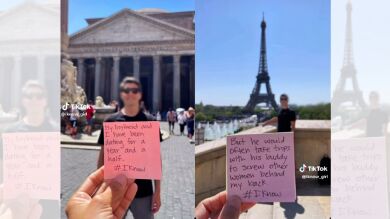 TikTok
@iknow_girl
My boyfriend and
I have been
dating for a
year and a
half.
#IKnow
But he would
often take trips
with his buddy
to screw other
women behind
my back
#IKnow
TikTok
@iknow_girl